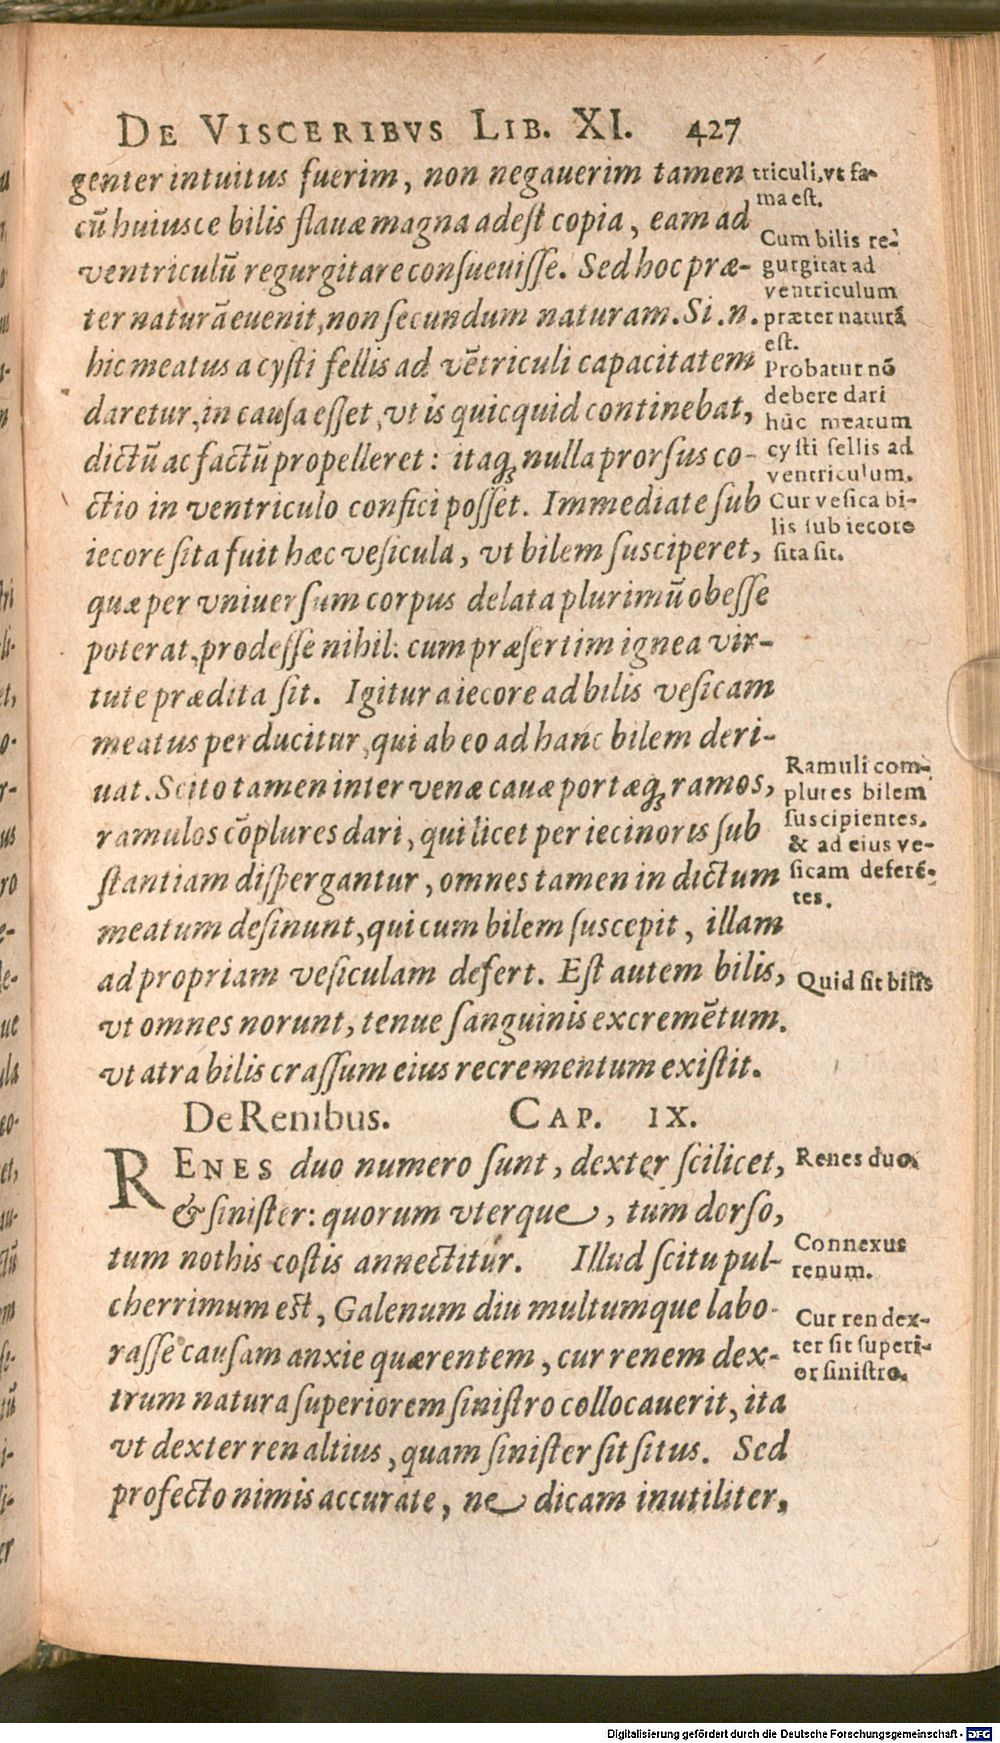 DE VISCERIBVS LIB. XI. 427
genter intuitus fuerim, non negauerim tamen
cū huiusce bilis flauæ magna adest copia, eam ad
ventriculū regurgitare consueuisse. Sed hoc præ-
ter naturā euenit, non secundum naturam. Si .n.
hic meatus a cysti fellis ad vētriculi capacitatem
daretur, in causa esset, vt is quicquid continebat,
dictū ac factū propelleret: itaq; nulla prorsus co-
ctio in ventriculo confici posset. Immediate sub
iecore sita fuit hæc vesicula, vt bilem susciperet,
quæ per vniuersum corpus delata plurimū obesse
poterat, prodesse nihil: cum præsertim ignea vir-
tute prædita sit. Igitur a iecore ad bilis vesicam
meatus perducitur, qui ab eo ad hanc bilem deri-
uat. Scito tamen inter venæ cauæ portæq; ramos,
ramulos cōplures dari, qui licet per iecinoris sub
stantiam dispergantur, omnes tamen in dictum
meatum desinunt, qui cum bilem suscepit, illam
ad propriam vesiculam defert. Est autem bilis,
vt omnes norunt, tenue sanguinis excremētum.
vt atra bilis crassum eius recrementum existit.
De Renibus. CAP. IX.
RENES duo numero sunt, dexter scilicet,
& sinister: quorum vterque, tum dorso,
tum nothis costis annectitur. Illud scitu pul-
cherrimum est, Galenum diu multumque labo-
rasse causam anxie quærentem, cur renem dex-
trum natura superiorem sinistro collocauerit, ita
vt dexter ren altius, quam sinister sit situs. Sed
profecto nimis accurate, ne dicam inutiliter,
triculi, vt fa-
ma est.
Cum bilis re-
gurgitat ad
ventriculum
præter naturā
est.
Probatur nō
debere dari
hūc meatum
cysti fellis ad
ventriculum.
Cur vesica bi-
lis sub iecore
sita sit.
Ramuli com-
plures bilem
suscipientes,
& ad eius ve-
sicam deferē-
tes.
Quid sit bilis
Renes duo.
Connexus
renum.
Cur ren dex-
ter sit superi-
or sinistro.
Digitalisierung gefördert durch die Deutsche Forschungsgemeinschaft - DFG